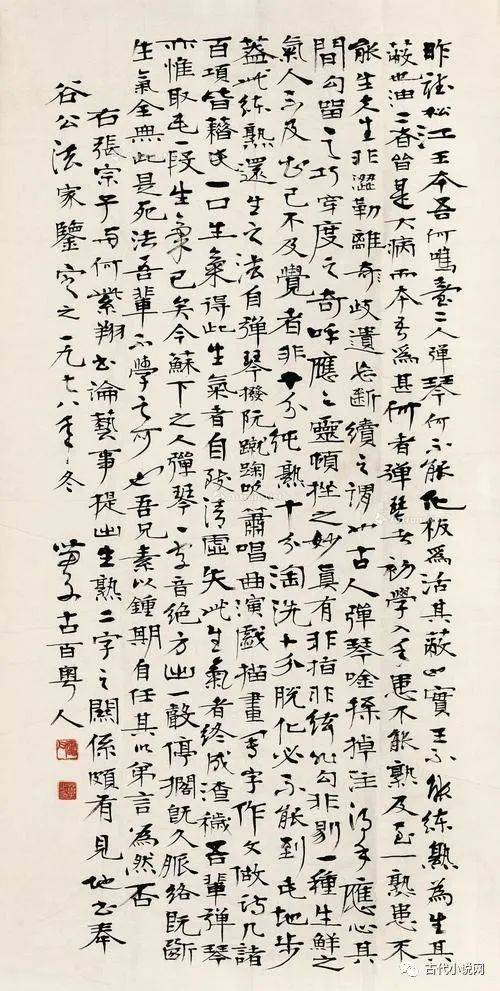 昨聽松江王本吾何鳴臺二人彈琴何不能化板爲活其蔽也實王不能練熟爲生其
蔽也油二者皆是大病而本吾爲甚何者彈琴者初學入手患不能熟及至一熟患不
能生夫生非澀勒離奇歧遺忘斷續之謂也古人彈琴唫猱掉注得手應心其
間勾留之巧穿度之奇呼應之靈頓挫之妙真有非指非絃非勾非剔一種生鮮之
氣人不及知己不及覺者非十分純熟十分淘洗十分脫化必不能到此地步
蓋此練熟還生之法自彈琴撥阮蹴踘吹簫唱曲演戲描畫寫字作文做詩凡諸
百項皆藉此一口生氣得此生氣者自致清虛失此生氣者終成渣穢吾輩彈琴
亦惟取此一段生氣已矣今蘇下之人彈琴一字音絕方出一聲停擱既久脈絡既斷
生氣全無此是死法吾輩不學之可也吾兄素以鍾期自任其以弟言爲然否
右張宗子與何紫翔書論藝事提出生熟二字之關係頗有見地書奉
谷公法家鑒定之一九七八年冬 苗子古百粵人
古代小说网